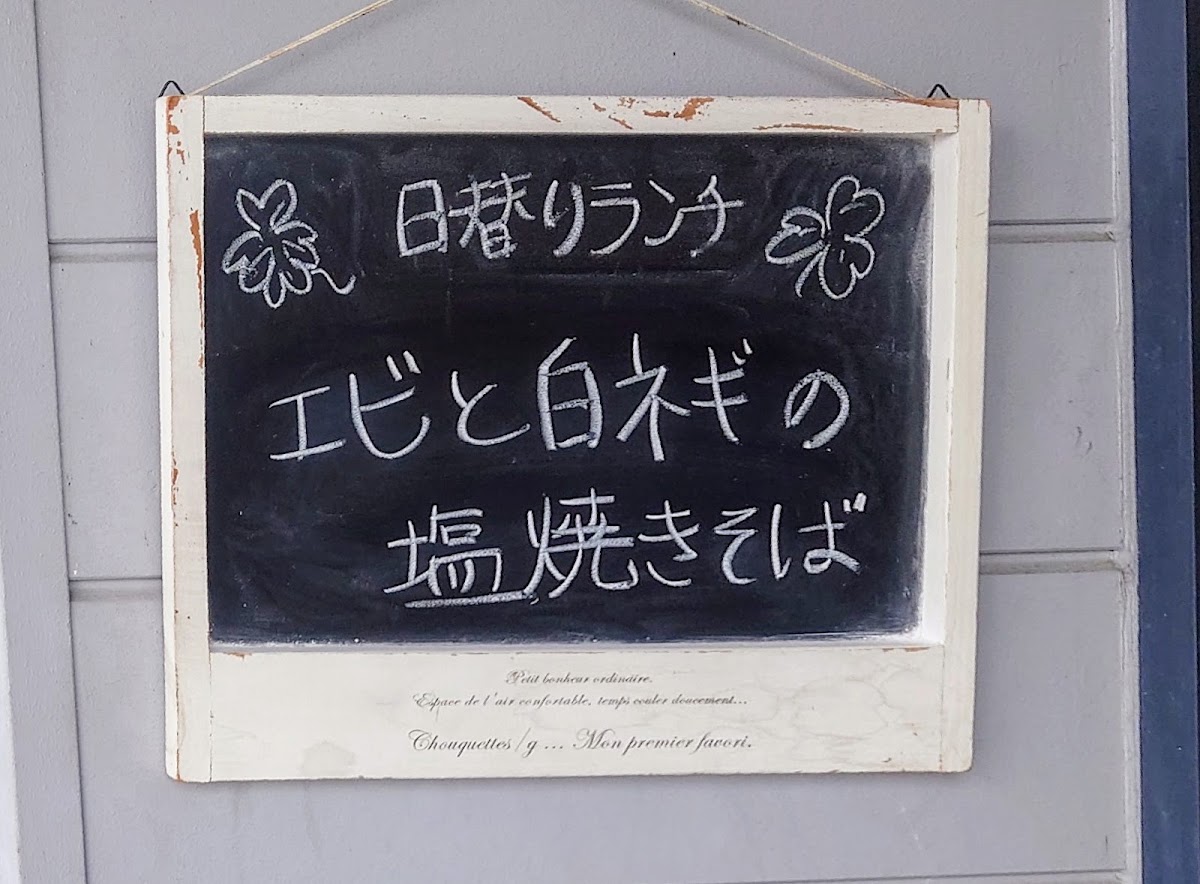 日替りランチ
エビと白ネギの
塩焼きそば
Petit bonheur ordinaire.
Espace de l'air confortable, temps couler doucement...
Chouquettes/g ... Mon premier favori.